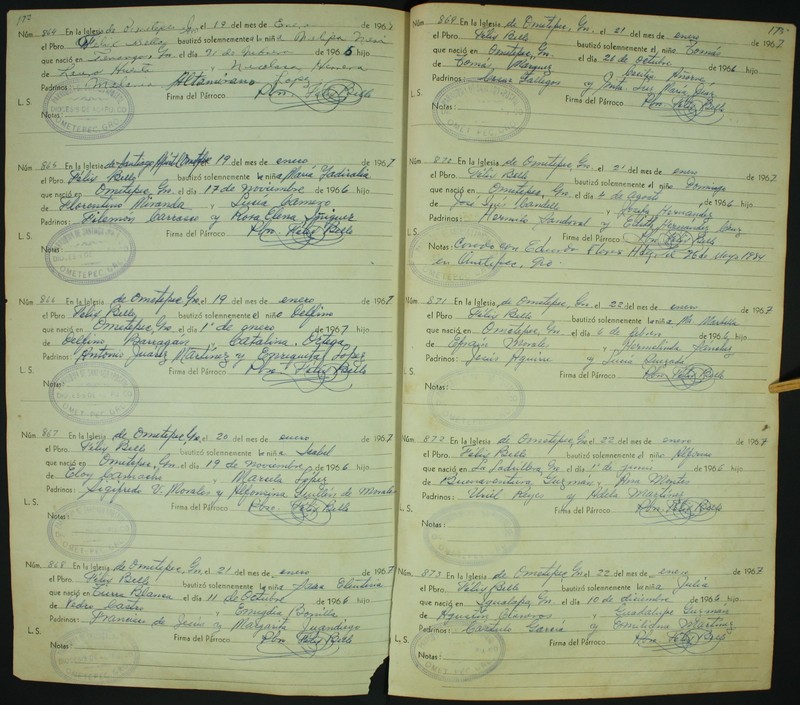 172
Núm 864 En la Iglesia de Ometepec, Gro. el 19 del mes de Enero de 1967
el Pbro. bautizó solennemente la niña
que nació en el día 21 de febrero de 1966 hijo
de y Herrera
Padrinos: Altamirano Lopez
L. S. Firma del Párroco Pbro. Félix Bello
Notas:
OMETEPEC, GRO.
Núm 865 En la Iglesia de Santiago Apóstol Ometepec 19 del mes de enero de 1967
el Pbro. Félix Bello bautizó solennemente la niña María
que nació en Ometepec, Gro. el día 17 de noviembre de 1966 hijo
de Florentino Miranda y Lucía Camero
Padrinos: Filemón Carrasco y Rosa Elena Iñiguez
L. S. Firma del Párroco Pbro. Félix Bello
Notas:
OMETEPEC, GRO.
Núm 866 En la Iglesia de Ometepec, Gro. el 19 del mes de enero de 1967
el Pbro. Félix Bello bautizó solennemente el niño Delfino
que nació en Ometepec, Gro. el día 1° de enero de 1967 hijo
de Delfino Barragan y Catalina Ortega
Padrinos: Antonio Juarez Martínez y Enriqueta Lopez
L. S. Firma del Párroco Pbro. Félix Bello
Notas:
OMETEPEC, GRO.
Núm 867 En la Iglesia de Ometepec, Gro. el 20 del mes de enero de 1967
el Pbro. Félix Bello bautizó solennemente la niña Isabel
que nació en Ometepec, Gro. el día 19 de noviembre de 1966 hijo
de Eloy Camacho y Marcela Lopez
Padrinos: Sigifredo V. Morales y de Morales
L. S. Firma del Párroco Pbro. Félix Bello
Notas:
OMETEPEC, GRO.
Núm 868 En la Iglesia de Ometepec, Gro. el 21 del mes de enero de 1967
el Pbro. Félix Bello bautizó solennemente la niña Sara Eleuteria
que nació en Tierra Blanca el día 11 de Octubre de 1966 hijo
de Pedro Castro y Bonilla
Padrinos: Francisco de Jesús y Margarita
L. S. Firma del Párroco Pbro. Félix Bello
Notas:
OMETEPEC, GRO.
173
Núm 869 En la Iglesia de Ometepec, Gro. el 21 del mes de enero de 1967
el Pbro. Félix Bello bautizó solennemente el niña Tomás
que nació en Ometepec, Gro. el día 26 de octubre de 1966 hijo
de Tomás Marquez y
Padrinos: Cesar Gallegos y Luz María
L. S. Firma del Párroco Pbro. Félix Bello
Notas:
OMETEPEC, GRO.
Núm 870 En la Iglesia de Ometepec, Gro. el 21 del mes de enero de 1967
el Pbro. Félix Bello bautizó solennemente el niño Domingo
que nació en Ometepec, Gro. el día 4 de agosto de 1966 hijo
de José y Hernandez
Padrinos: Sandoval y Edith Hernandez Cruz
L. S. Firma del Párroco Pbro. Félix Bello
Notas: con Flores 26 de Mayo 1984
en Ometepec, Gro.
Núm 871 En la Iglesia de Ometepec, Gro. el 22 del mes de enero de 1967
el Pbro. Félix Bello bautizó solennemente la niña Ma.
que nació en Ometepec, Gro. el día 6 de febrero de 1966 hijo
de Efraín Morales y Hermelinda Sánchez
Padrinos: Jesús Aguirre y Lucía Quezada
L. S. Firma del Párroco Pbro. Félix Bello
Notas:
Núm 872 En la Iglesia de Ometepec, Gro. el 22 del mes de enero de 1967
el Pbro. Félix Bello bautizó solennemente el niño Alfonso
que nació en La Ladrillera, Gro. el día 11 de junio de 1966 hijo
de Buenaventura Guzmán y Ana Montes
Padrinos: Uriel Reyes y Hilda Martínez
L. S. Firma del Párroco Pbro. Félix Bello
Notas:
Núm 873 En la Iglesia de Ometepec, Gro. el 22 del mes de enero de 1967
el Pbro. Félix Bello bautizó solennemente la niña Julia
que nació en Igualapa, Gro. el día 10 de diciembre de 1966 hijo
de Agustín Cisneros y Guadalupe Guzmán
Padrinos: García y Martínez
L. S. Firma del Párroco Pbro. Félix Bello
Notas:
OMETEPEC, GRO.